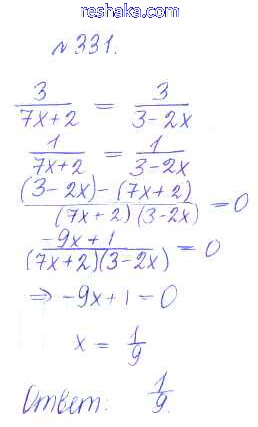 reshaka.com
№331.
3/(7x+2) = 3/(3-2x)
1/(7x+2) = 1/(3-2x)
((3-2x)-(7x+2))/((7x+2)(3-2x)) = 0
(-9x+1)/((7x+2)(3-2x)) = 0
⇒ -9x+1=0
x = 1/9
Ответ: 1/9.